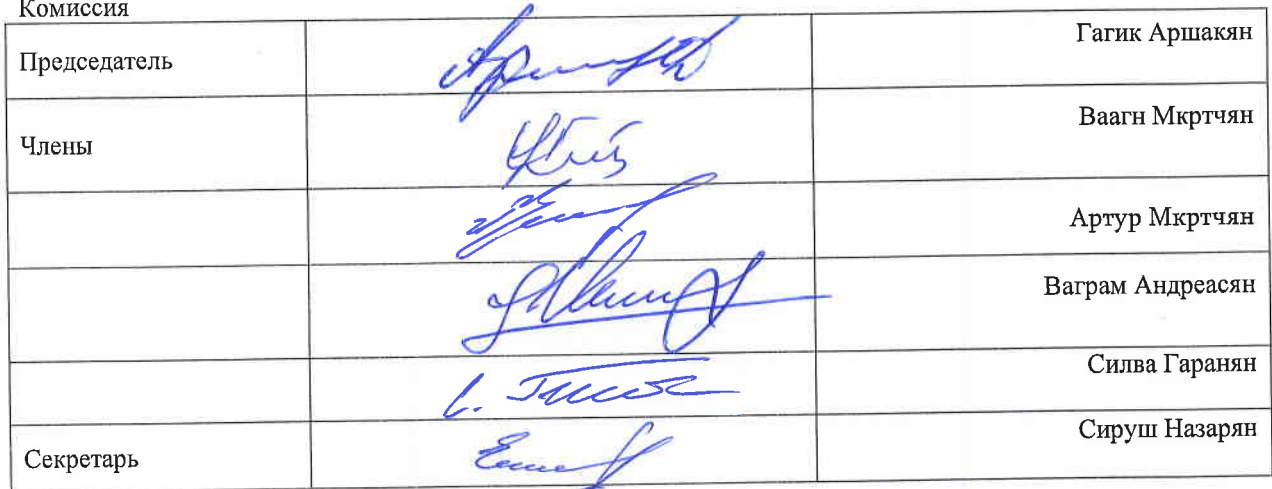 Комиссия
Председатель Гагик Аршакян
Члены Ваагн Мкртчян
Артур Мкртчян
Ваграм Андреасян
Силва Гаранян
Секретарь Сируш Назарян